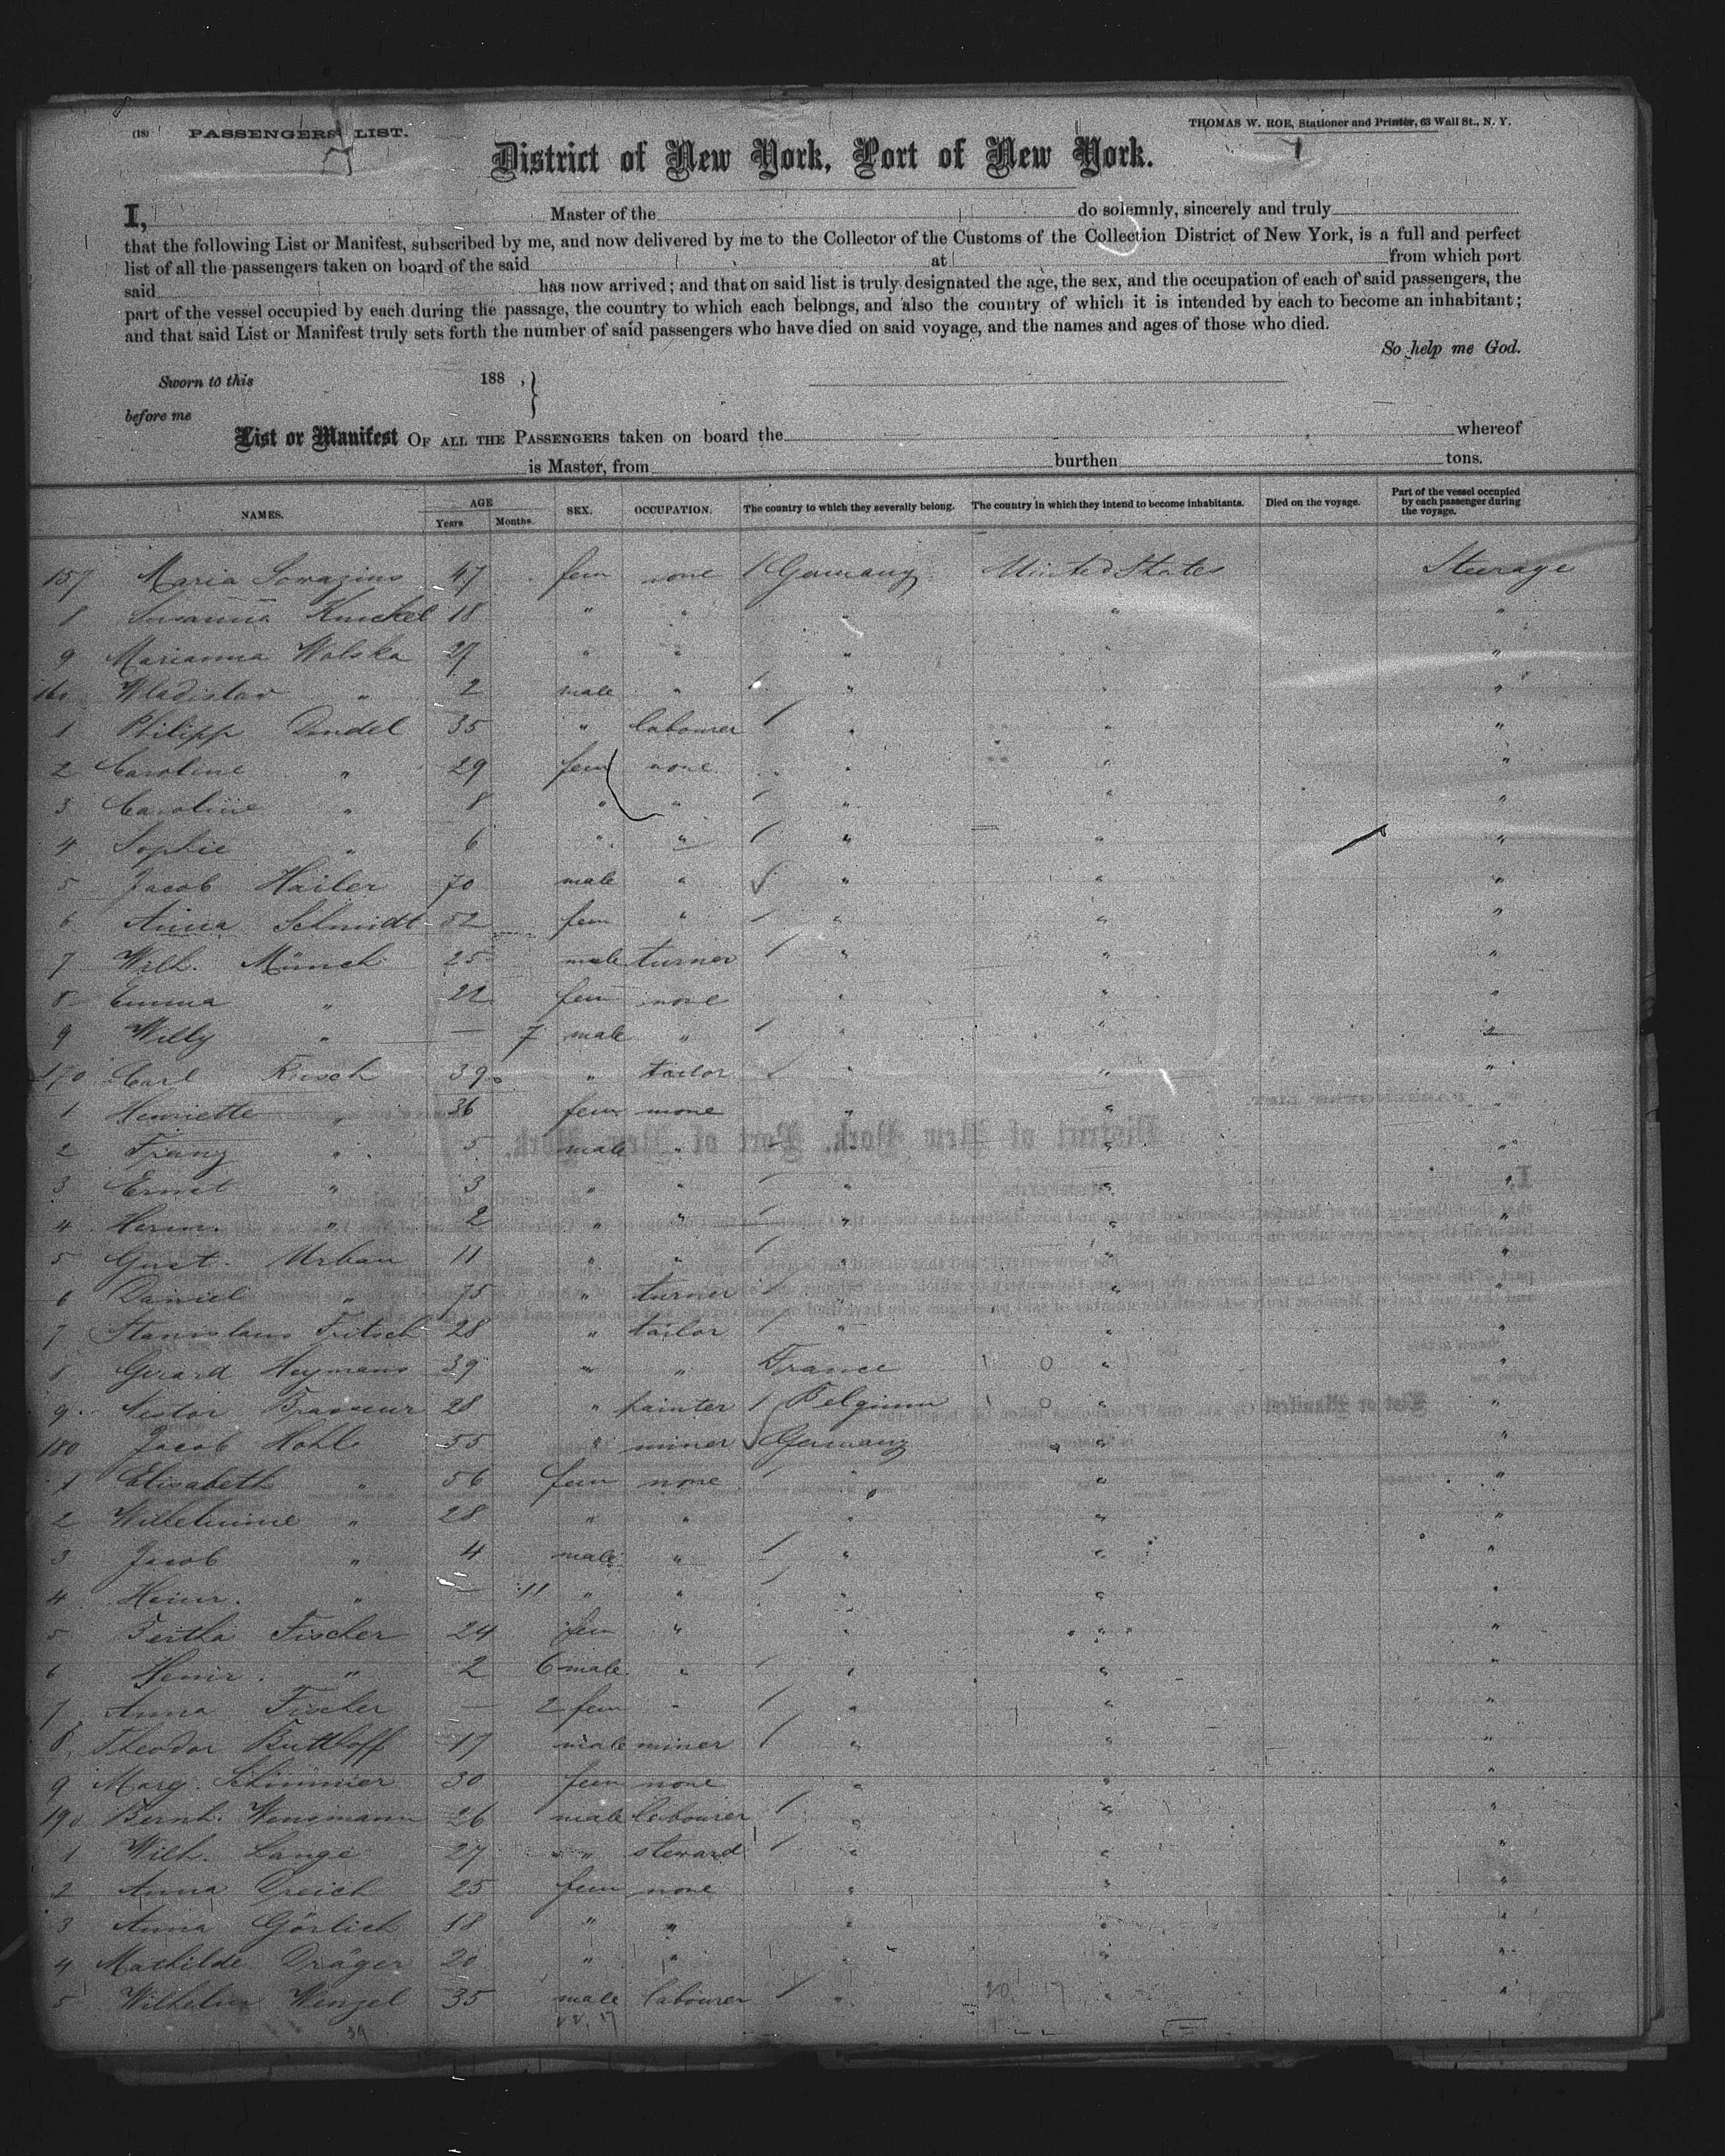 (18) PASSENGERS' LIST.
THOMAS W. ROE, Stationer and Printer, 63 Wall St., N. Y.
District of New York, Port of New York.
I, Master of the do solemnly, sincerely and truly
that the following List or Manifest, subscribed by me, and now delivered by me to the Collector of the Customs of the Collection District of New York, is a full and perfect
list of all the passengers taken on board of the said at from which port
said has now arrived; and that on said list is truly designated the age, the sex, and the occupation of each of said passengers, the
part of the vessel occupied by each during the passage, the country to which each belongs, and also the country of which it is intended by each to become an inhabitant;
and that said List or Manifest truly sets forth the number of said passengers who have died on said voyage, and the names and ages of those who died.
So help me God.
Sworn to this 188 , }
before me
List or Manifest OF ALL THE PASSENGERS taken on board the whereof
is Master, from burthen tons.
NAMES. AGE Years Months. SEX. OCCUPATION. The country to which they severally belong. The country in which they intend to become inhabitants. Died on the voyage. Part of the vessel occupied by each passenger during the voyage.
157 Maria 47 fem none Germany United States Steerage
8 Susanna Knickel 18 " " " " "
9 Marianna Walska 27 " " " " "
160 Wladislav " 2 male " " " "
1 Philipp Dendel 35 " labourer " " "
2 Caroline " 29 fem none " " "
3 Caroline " 8 " " " " "
4 Sophie " 6 " " " " "
5 Jacob Hailer 70 male " " " "
6 Anna Schmidt 52 fem " " " "
7 Wilh. Münch 25 male turner " " "
8 Emma " 22 fem none " " "
9 Willy " — 7 male " " " "
170 Carl Rusch 39 " tailor " " "
1 Henriette " 36 fem none " " "
2 Franz " 5 male " " " "
3 Ernst " 3 " " " " "
4 Herm. " 2 " " " " "
5 Gust. Urban 11 " " " " "
6 Daniel " 75 " turner " " "
7 Stanislaus Fritsch 28 " tailor " " "
8 Gerard Heymans 39 " " France " "
9 Nestor Brasseur 28 " painter Belgium " "
180 Jacob Hohls 55 " miner Germany " "
1 Elisabeth " 56 fem none " " "
2 Wilhelmine " 28 " " " " "
3 Jacob " 4 male " " " "
4 Heinr. " — 11 " " " " "
5 Bertha Fischer 24 fem " " " "
6 Heinr. " 2 6 male " " " "
7 Anna Fischer — 2 fem " " " "
8 Theodor Butthoff 17 male miner " " "
9 Marg. Schimmer 30 fem none " " "
190 Bernh. Wensmann 26 male labourer " " "
1 Wilh. Lange 27 " steward " " "
2 Anna Dreich 25 fem none " " "
3 Anna Görlich 18 " " " " "
4 Mathilde Dräger 20 " " " " "
5 Wilhelm Wenzel 35 male labourer " " "